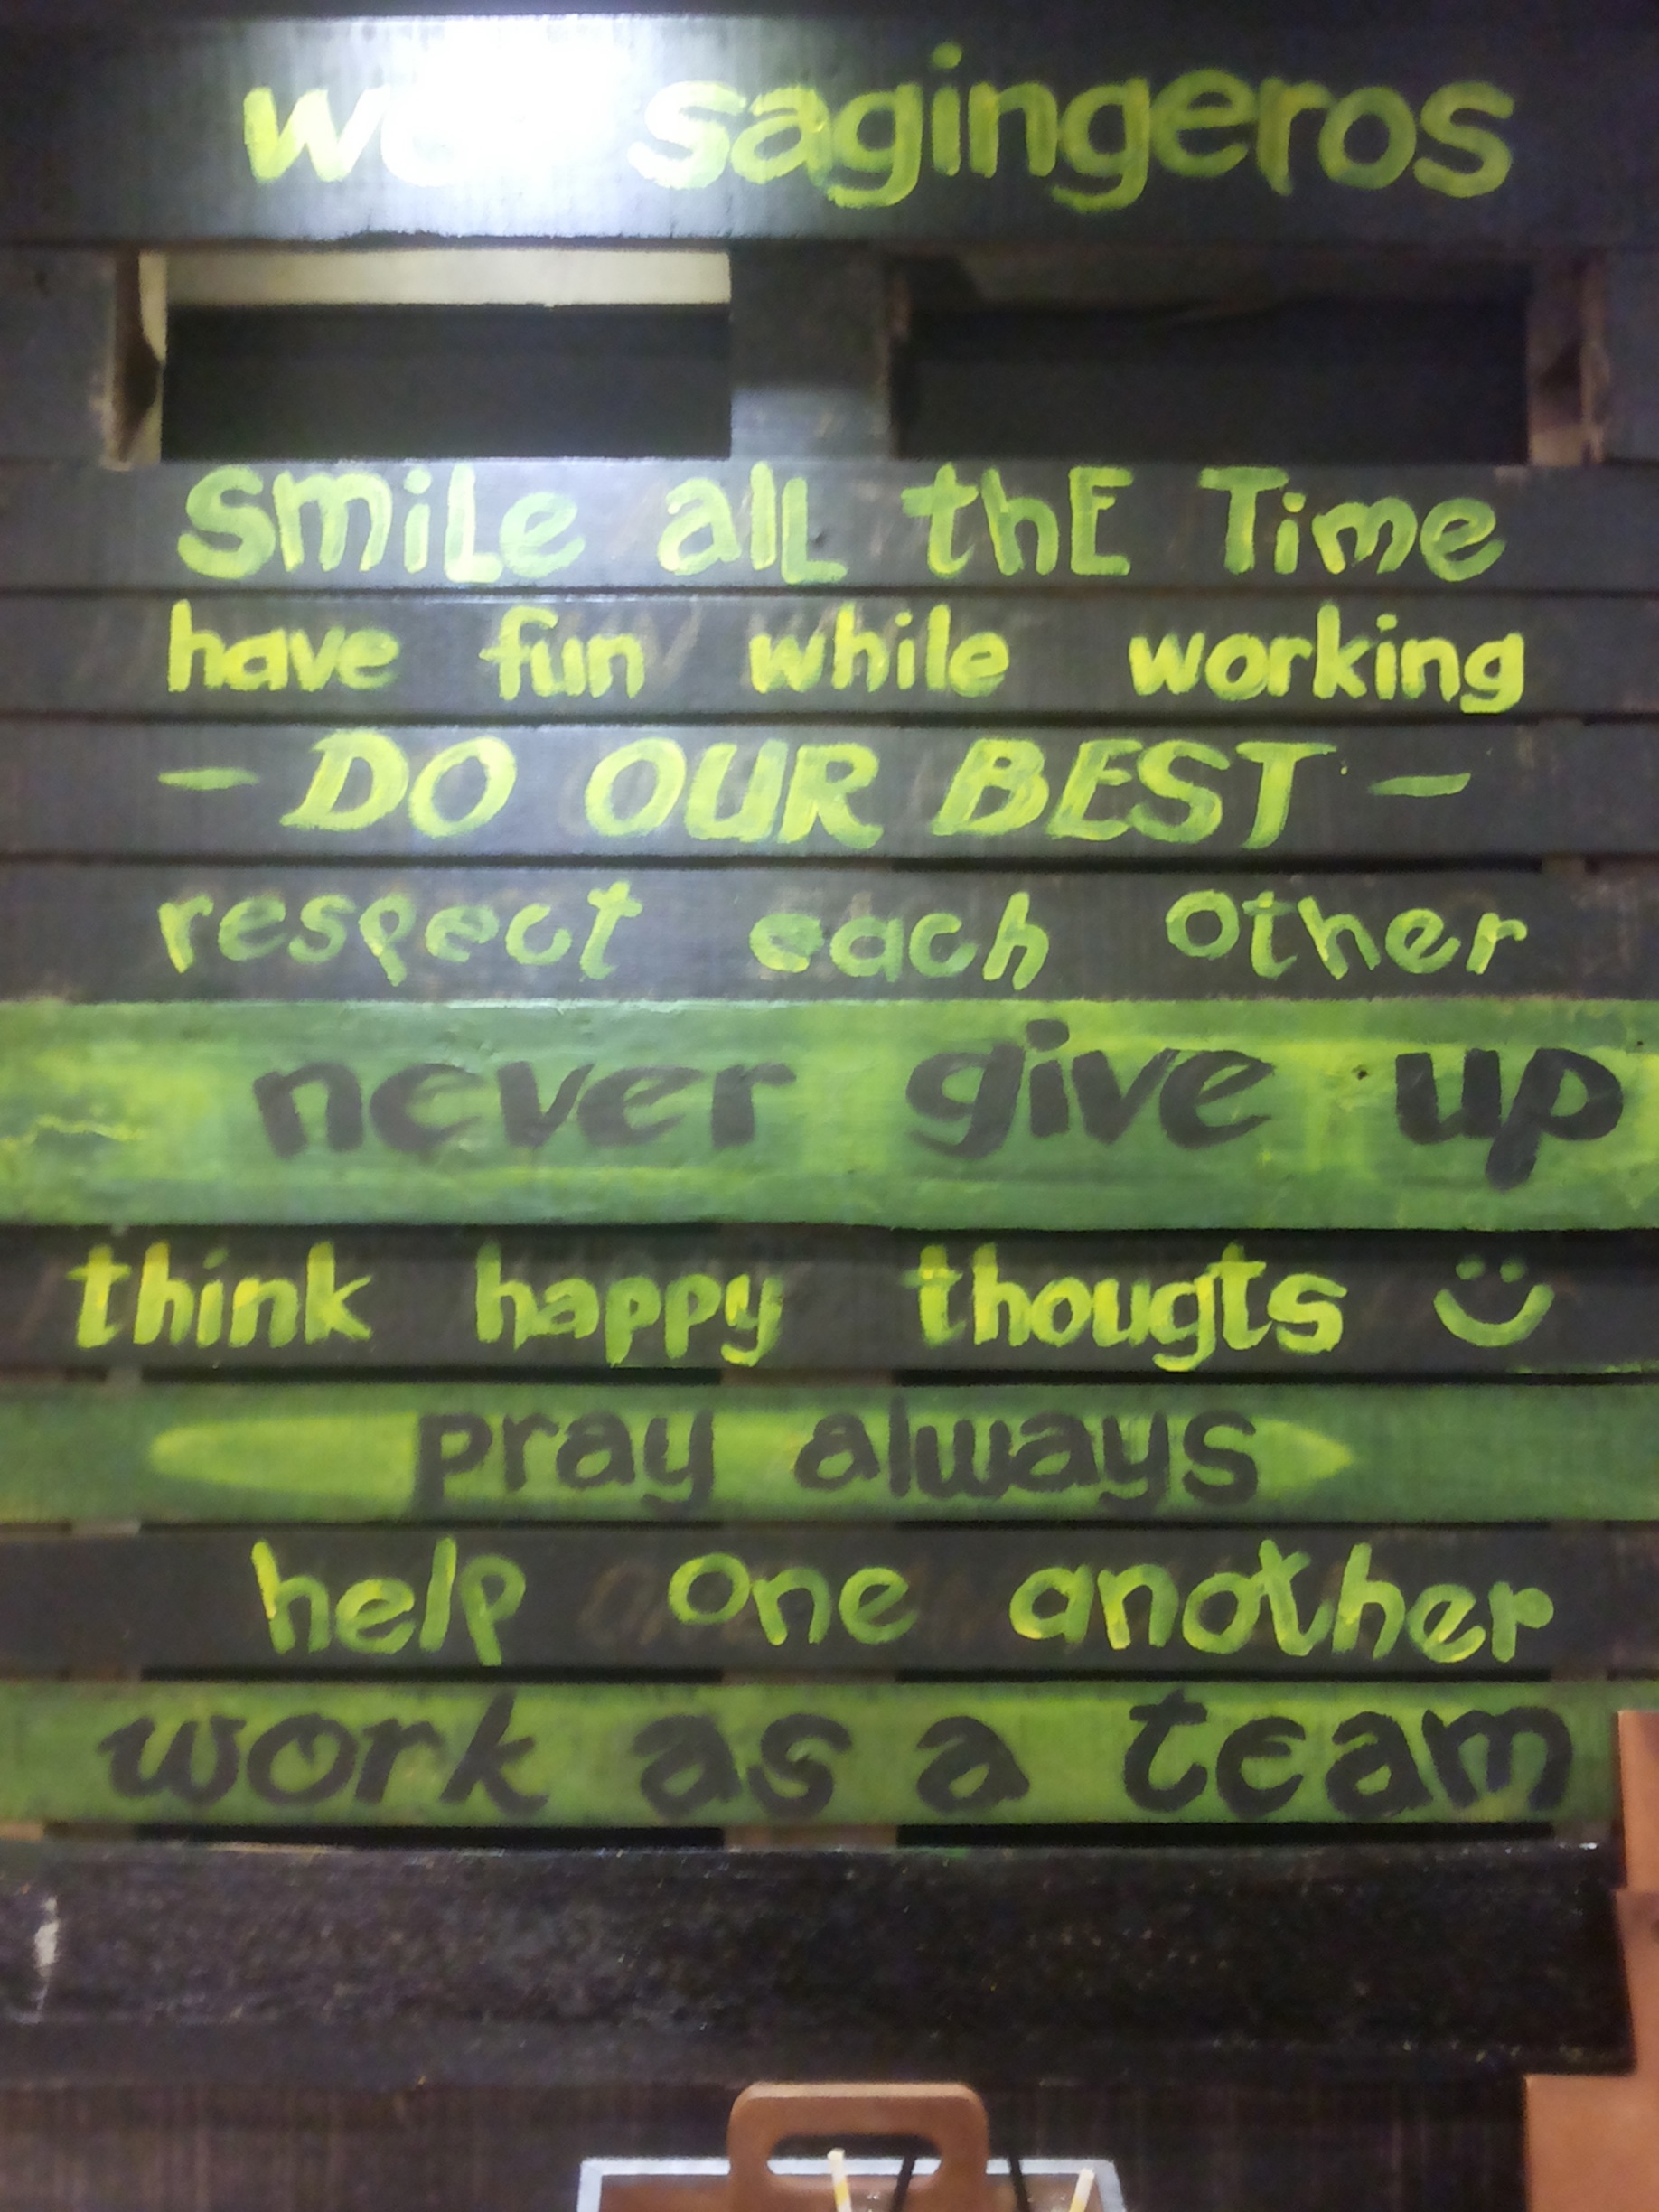 we sagingeros
SmiLe alL thE Time
have fun while working
- DO OUR BEST -
respect each other
never give up
think happy thougts
pray always
help one another
work as a team